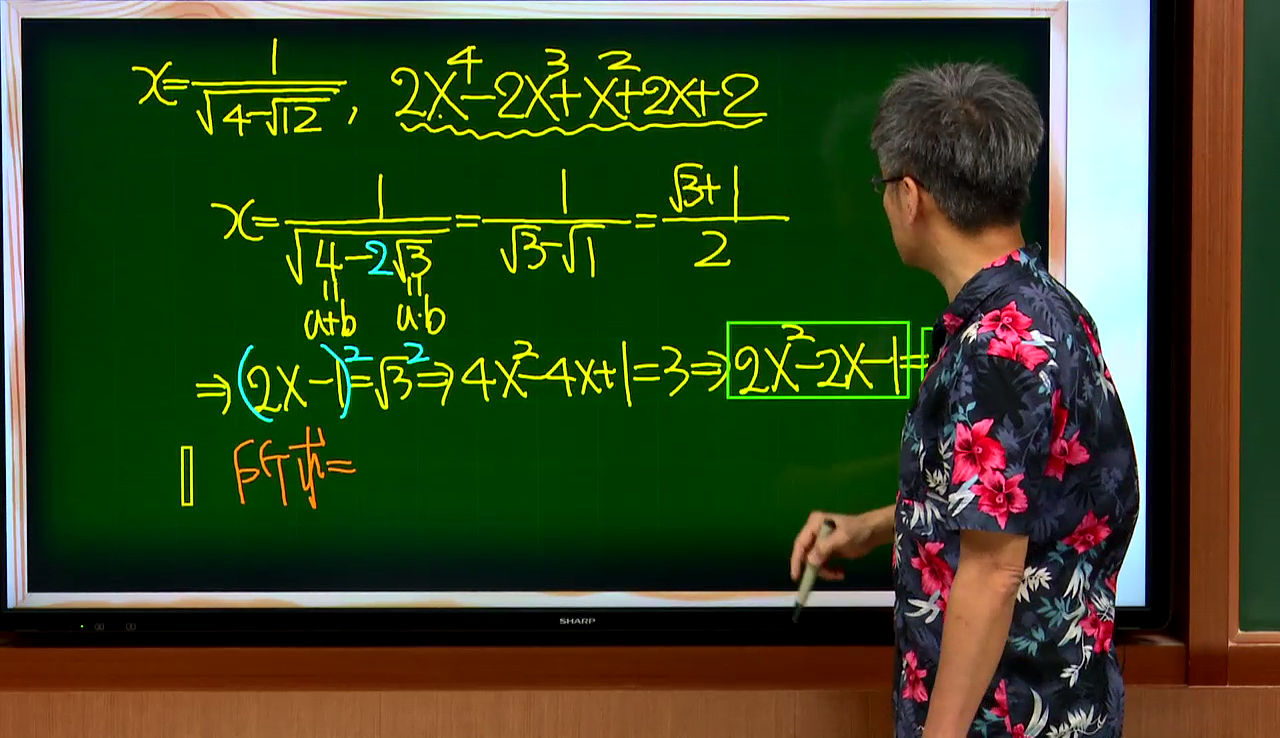 x=1/√(4-√12), 2x⁴-2x³+x²+2x+2
x=1/√(4-2√3)=1/(√3-√1)=(√3+1)/2
a+b a·b
⇒(2x-1)²=√3²⇒4x²-4x+1=3⇒2x²-2x-1=
所求=
SHARP